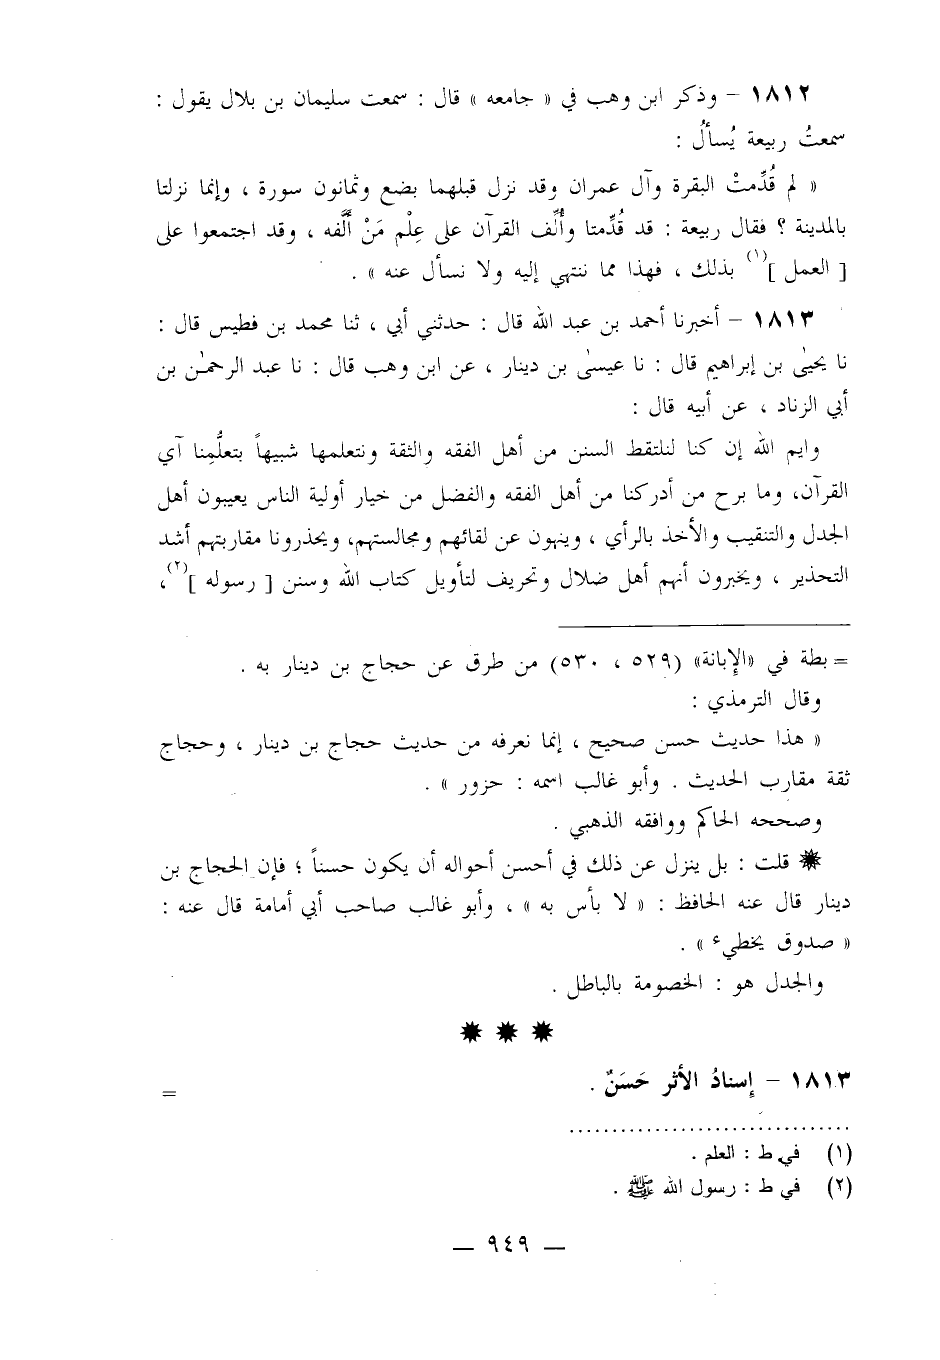 ١٨١٢ – وذكر ابن وهب في « جامعه » قال : سمعت سليمان بن بلال يقول :
سمعتُ ربيعة يُسألُ :
« لم قُدِّمتْ البقرة وآل عمران وقد نزل قبلهما بضع وثمانون سورة ، وإنما نزلتا
بالمدينة ؟ فقال ربيعة : قد قُدِّمتا وأُلِّف القرآن على عِلْم مَنْ ألَّفه ، وقد اجتمعوا على
[ العمل ](١) بذلك ، فهذا مما ننتهي إليه ولا نسأل عنه » .
١٨١٣ – أخبرنا أحمد بن عبد الله قال : حدثني أبي ، ثنا محمد بن فطيس قال :
نا يحيىٰ بن إبراهيم قال : نا عيسىٰ بن دينار ، عن ابن وهب قال : نا عبد الرحمٰن بن
أبي الزناد ، عن أبيه قال :
وايم الله إن كنا لنلتقط السنن من أهل الفقه والثقة ونتعلمها شبيهاً بتعلُّمِنا آي
القرآن، وما برح من أدركنا من أهل الفقه والفضل من خيار أولية الناس يعيبون أهل
الجدل والتنقيب والأخذ بالرأي ، وينهون عن لقائهم ومجالستهم، ويحذرونا مقاربتهم أشد
التحذير ، ويخبرون أنهم أهل ضلال وتحريف لتأويل كتاب الله وسنن [ رسوله ](٢)،
= بطة في «الإبانة» (٥٢٩ ، ٥٣٠) من طرق عن حجاج بن دينار به .
وقال الترمذي :
« هذا حديث حسن صحيح ، إنما نعرفه من حديث حجاج بن دينار ، وحجاج
ثقة مقارب الحديث . وأبو غالب اسمه : حزور » .
وصححه الحاكم ووافقه الذهبي .
✹ قلت : بل ينزل عن ذلك في أحسن أحواله أن يكون حسناً ؛ فإن الحجاج بن
دينار قال عنه الحافظ : « لا بأس به » ، وأبو غالب صاحب أبي أمامة قال عنه :
« صدوق يخطيء » .
والجدل هو : الخصومة بالباطل .
✹ ✹ ✹
١٨١٣ – إسنادُ الأثر حَسَنٌ . =
(١) في ط : العلم .
(٢) في ط : رسول الله ﷺ .
— ٩٤٩ —